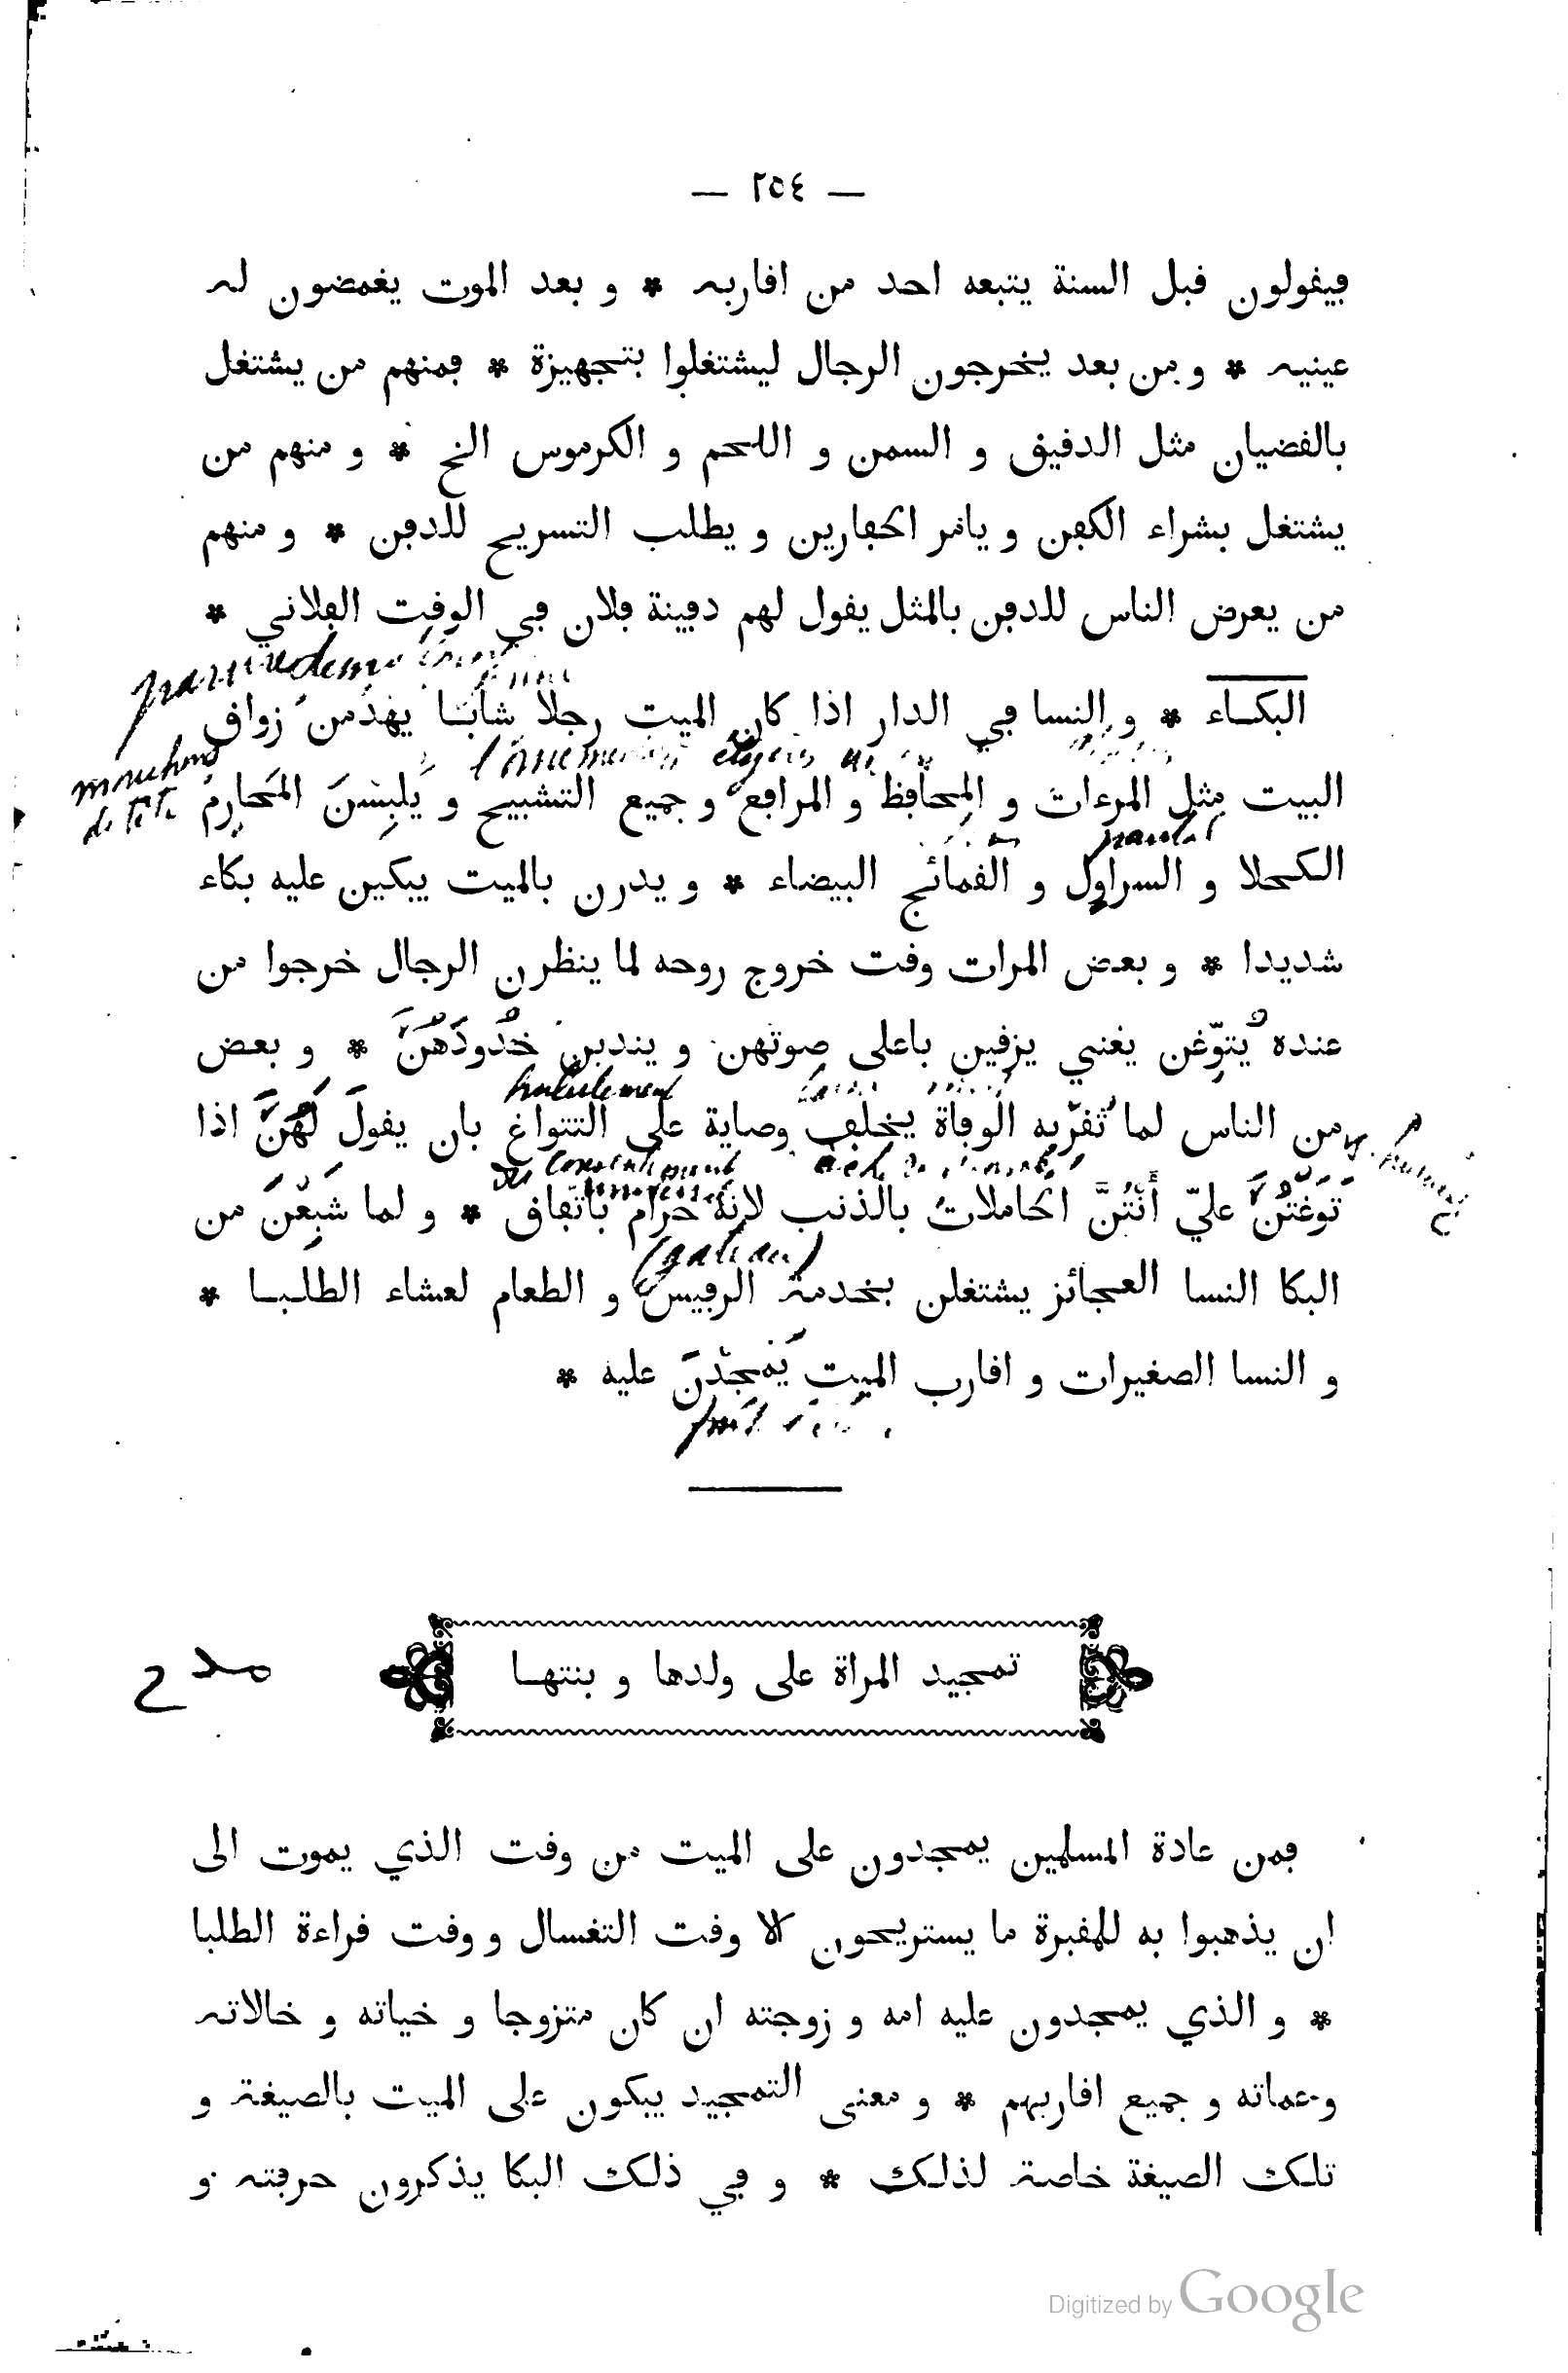 — ٢٥٤ —
فيقولون قبل السنة يتبعه احد من اقاربه * و بعد الموت يغمضون له
عينيه * و من بعد يخرجون الرجال ليشتغلوا بتجهيزة * فمنهم من يشتغل
بالقضيان مثل الدقيق و السمن و اللحم و الكرموس الخ * و منهم من
يشتغل بشراء الكفن و يامر الحفارين و يطلب التسريح للدفن * و منهم
من يعرض الناس للدفن بالمثل يقول لهم دفينة فلان في الوقت الفلاني *
البكاء * و النسا في الدار اذا كان الميت رجلا شابّا يهدمن زواق
mouchoirs
de tête
البيت مثل المرءات و المحافظ و المرافع و جميع التشبيح و يَلبسْنَ المَحارِمَ
الكحلا و السراول و القمائج البيضاء * و يدرن بالميت يبكين عليه بكاء
شديدا * و بعض المرات وقت خروج روحه لما ينظرن الرجال خرجوا من
عنده يُتوّغن يغني يزقين باعلى صوتهن و يندبن خُدُودَهُنَّ * و بعض
hurlement
من الناس لما تُقرّبه الوفاة يخلف وصاية على التتواغ بان يقول لَهُنَّ اذا
تَوّغتُنَّ عليّ أَنتُنَّ الحاملاتُ بالذنب لانه حرام باتفاق * و لما شَبِعْنَ من
(gateau)
البكا النسا العجائز يشتغلن بخدمة الرفيس و الطعام لعشاء الطلبا *
و النسا الصغيرات و اقارب الميت يَمجدْنَ عليه *
تمجيد المراة على ولدها و بنتها
مدح
فمن عادة المسلمين يمجدون على الميت من وقت الذي يموت الى
ان يذهبوا به للمقبرة ما يستريحون الا وقت التغسال و وقت قراءة الطلبا
* و الذي يمجدون عليه امه و زوجته ان كان متزوجا و خياته و خالاته
و عماته و جميع اقاربهم * و معنى التمجيد يبكون على الميت بالصيغة و
تلك الصيغة خاصة لذلك * و في ذلك البكا يذكرون حرفته و
Digitized by Google